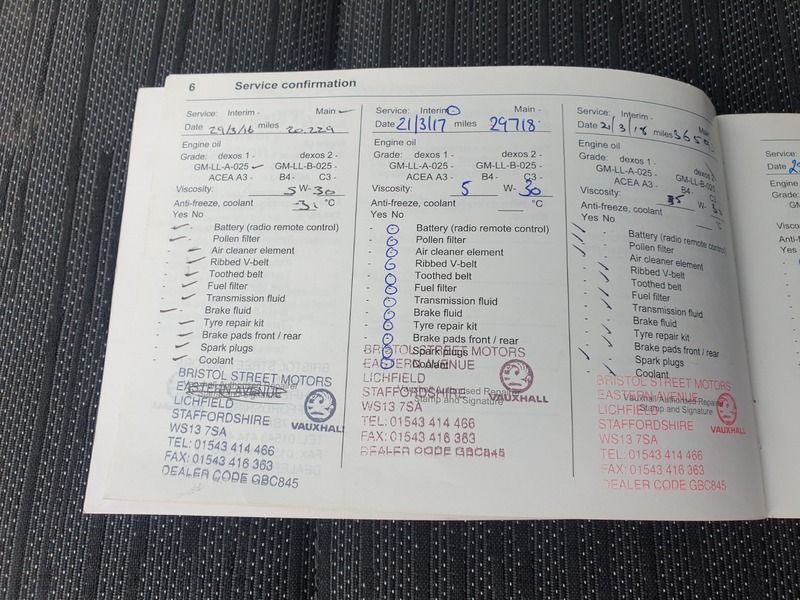 6 Service confirmation
Service: Interim - Main -
Date 29/3/16 miles 20.229
Engine oil
Grade: dexos 1 - dexos 2 -
GM-LL-A-025 - GM-LL-B-025 -
ACEA A3 - B4 - C3 -
Viscosity: 5 W- 30
Anti-freeze, coolant -31 °C
Yes No
- - Battery (radio remote control)
- - Pollen filter
- - Air cleaner element
- - Ribbed V-belt
- - Toothed belt
- - Fuel filter
- - Transmission fluid
- - Brake fluid
- - Tyre repair kit
- - Brake pads front / rear
- - Spark plugs
- - Coolant
BRISTOL STREET MOTORS
EASTERN AVENUE
LICHFIELD
STAFFORDSHIRE
WS13 7SA
TEL: 01543 414 466
FAX: 01543 416 363
DEALER CODE GBC845
VAUXHALL
Service: Interim - Main -
Date 21/3/17 miles 29718
Engine oil
Grade: dexos 1 - dexos 2 -
GM-LL-A-025 - GM-LL-B-025 -
ACEA A3 - B4 - C3 -
Viscosity: 5 W- 30
Anti-freeze, coolant °C
Yes No
- Battery (radio remote control)
- Pollen filter
- Air cleaner element
- Ribbed V-belt
- Toothed belt
- Fuel filter
- Transmission fluid
- Brake fluid
- Tyre repair kit
- Brake pads front / rear
- Spark plugs
- Coolant
BRISTOL STREET MOTORS
EASTERN AVENUE
LICHFIELD
Vauxhall Authorised Repairer
STAFFORDSHIRE
Stamp and Signature
WS13 7SA
TEL: 01543 414 466
FAX: 01543 416 363
DEALER CODE GBC845
VAUXHALL
Service: Interim - Main
Date 21/3/18 miles
Engine oil
Grade: dexos 1 - dexos 2
GM-LL-A-025 - GM-LL-B-025
ACEA A3 - B4 - C3 -
Viscosity: W-
Anti-freeze, coolant °C
Yes No
- Battery (radio remote control)
- Pollen filter
- Air cleaner element
- Ribbed V-belt
- Toothed belt
- Fuel filter
- Transmission fluid
- Brake fluid
- Tyre repair kit
- Brake pads front / rear
- Spark plugs
- Coolant
BRISTOL STREET MOTORS
EASTERN AVENUE
Vauxhall Authorised Repairer
LICHFIELD
Stamp and Signature
STAFFORDSHIRE
WS13 7SA
TEL: 01543 414 466
FAX: 01543 416 363
DEALER CODE GBC845
VAUXHALL
Service:
Date
Engine
Grade:
GM-
Viscos
Anti-f
Yes